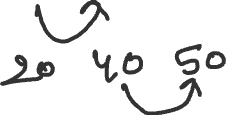 20 40 50